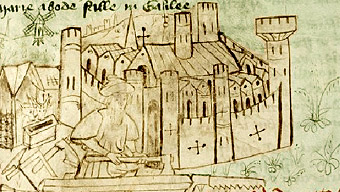 marie abode stille in Galilee